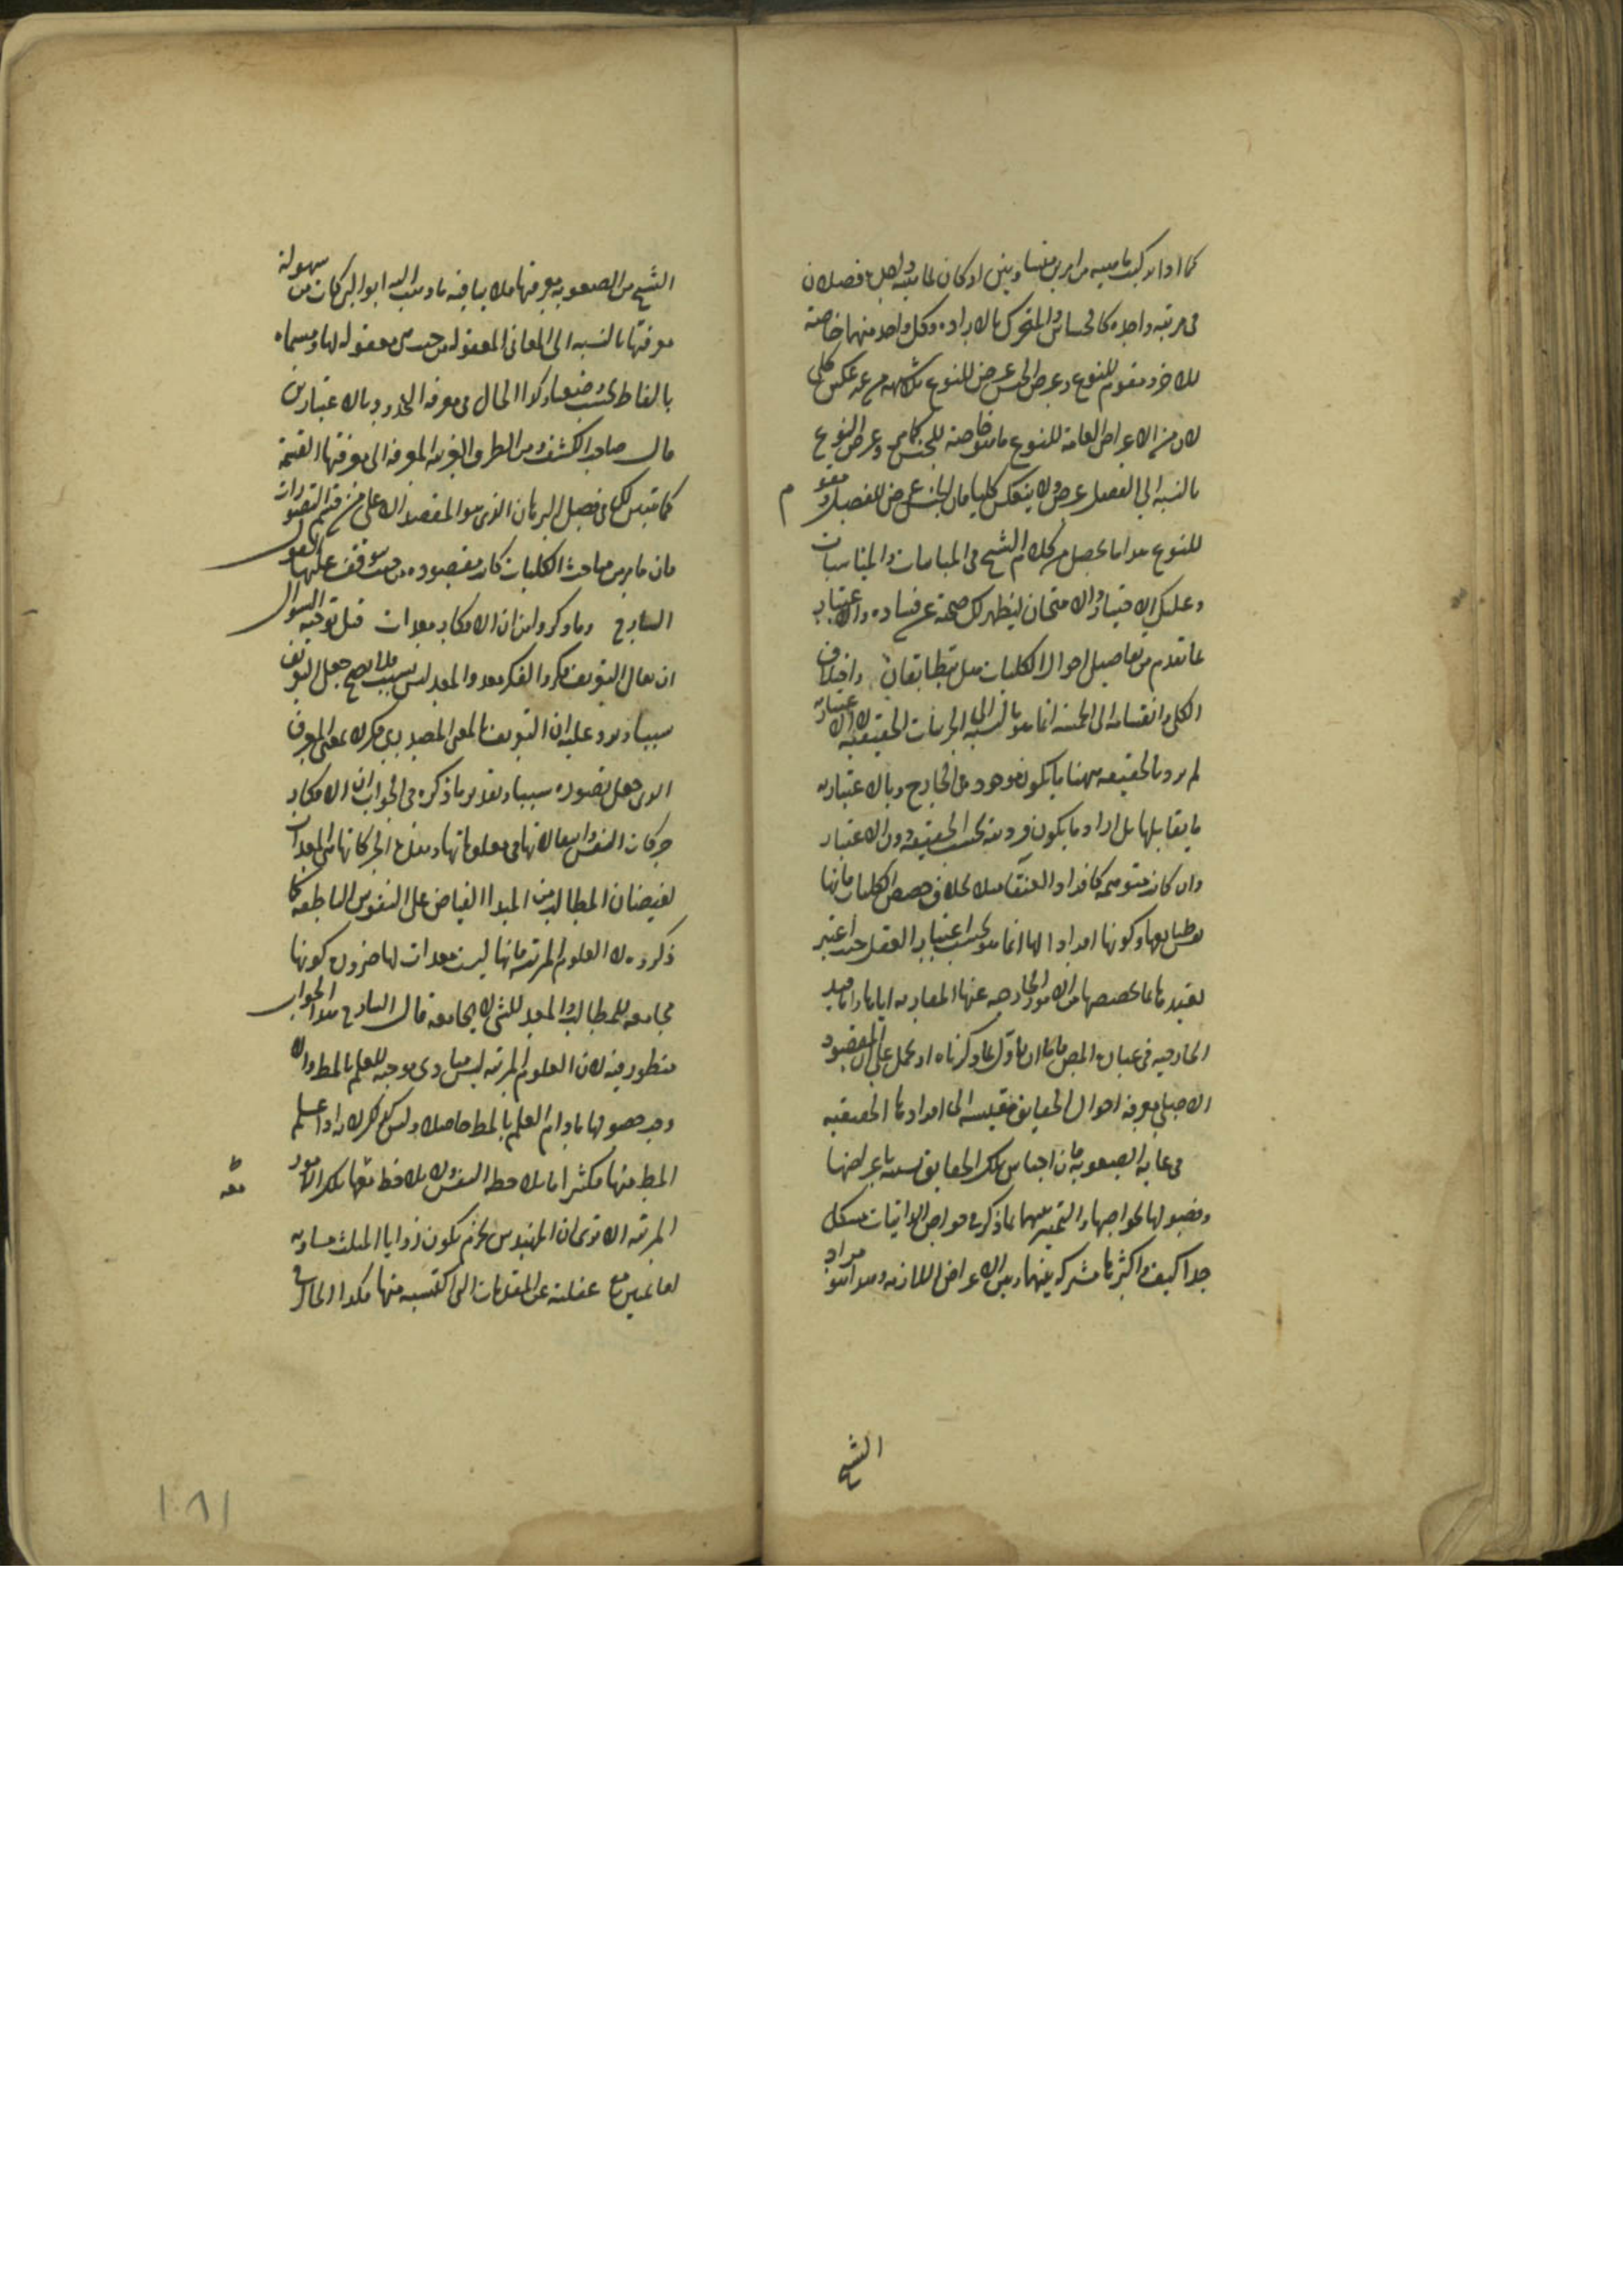 كما اذا تركبت ماهية من امرين متساويين او كان لماهية واحدة فصلان
فى مرتبة واحدة كالحساس والمتحرك بالارادة وكل واحد منهما خاصة
للاخر ومقوم للنوع وعرض الجنس عرض للنوع بلا شبهة من غير عكس كلى
لان من الاعراض العامة للنوع ما هو خاصة للجنس كما مر وعرض النوع
بالنسبة الى الفصل عرض ولا ينعكس كليا فان الجنس عرض للفصل ومقوم
للنوع هذا ما تحصل من كلام الشيخ فى المباينات والمناسبات
وعليك الاختيار والامتحان ليظهر لك صحته عن فساده والاعتبار
بما تقدم من تفاصيل احوال الكليات هل يتطابقان واختلاف
الكلى وانقسامه الى الخمسة انما هو بالنسبة الى الجزئيات الحقيقية لا الاعتبارية
لم يرد بالحقيقة ههنا ما يكون موجودة فى الخارج وبالاعتبارية
ما يقابلها بل اراد ما يكون فرديته بحسب الحقيقة دون الاعتبار
وان كانت متوهمة كافراد العنقا مثلا بخلاف حصص الكليات فانها
نفس طبايعها وكونها افرادا لها انما هو بحسب اعتبار العقل حيث اعتبر
تقيدها بما يخصصها من الامور الخارجة عنها المغايرة اياها واما قيد
الخارجية فى عبارة المص فاما ان يأول بما ذكرناه او يحمل على ان المقصود
الاصلى معرفة احوال الحقايق مقيسة الى افرادها الحقيقية
فى غاية الصعوبة فان اجناس تلك الحقايق تشتبه باعراضها
وفصولها بخواصها والتميز بينهما بما ذكر فى خواص الذاتيات مشكل
جدا كيف واكثرها مشتركة بينهما وبين الاعراض اللازمة وهذا هو مراد
الشيخ
الشيخ من الصعوبة معرفتها فلا ينافيه ما ذهب اليه ابو البركات من سهولة
معرفتها بالنسبة الى المعانى المعقولة من حيث هى معقولة لها ومسماه
بالفاظ بحسب وضعها وكذا الحال فى معرفة الحدود وبالاعتبارين
قال صاحب الكشف ومن الطرق القريبة المعرفة الى معرفتها القسمة
كما تبين لك فى فصل البرهان الذى هو المقصد الاعلى من قسم التصورات
فان ما مر من مباحث الكليات كان مقصودة من حيث يتوقف عليها قول
الشارح وما ذكروا من ان الافكار معدات قيل توجيه السوال
ان يقال التعريف فكر والفكر معد والمعد ليس بسبب فلا يصح جعل التعريف
سببا ويرد عليه ان التعريف بالمعنى المصدرى فكر لا بمعنى المعرف
الذى جعل تصوره سببا وتقرير ما ذكره فى الجواب ان الافكار
حركات النفس وانتقالاتها فى معلوماتها وهذه الحركات هى المعدات
لفيضان المطالب من المبدا الفياض على النفوس الناطقة كما
ذكروه لا العلوم المرتبة فانها ليست معدات لها ضرورة كونها
مجامعة للمطالب والمعد للشى لا يجامعه قال الشارح هذا الجواب
منظور فيه لان العلوم المرتبة ليس مبادى موجبة للعلم بالمط والا
وجب حصولها ما دام العلم بالمط حاصلا وليس كذلك لانه اذا علم
المط منها فكثيرا ما يلاحظه النفس ولا يلاحظ معها تلك الامور
المرتبة الا ترى ان المهندس يجزم بكون زوايا المثلث مساوية
لقائمتين مع غفلته عن المقدمات التى اكتسبه منها هكذا الحال فى
١٠٨١